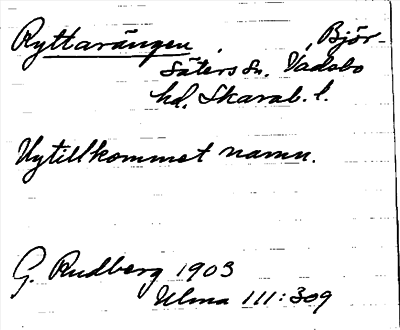 Ryttarängen, , Björ-
säters sn. Vadsbo
hd, Skarab. l.
Nytillkommet namn.
G. Rudberg 1903
Ulma 111:309